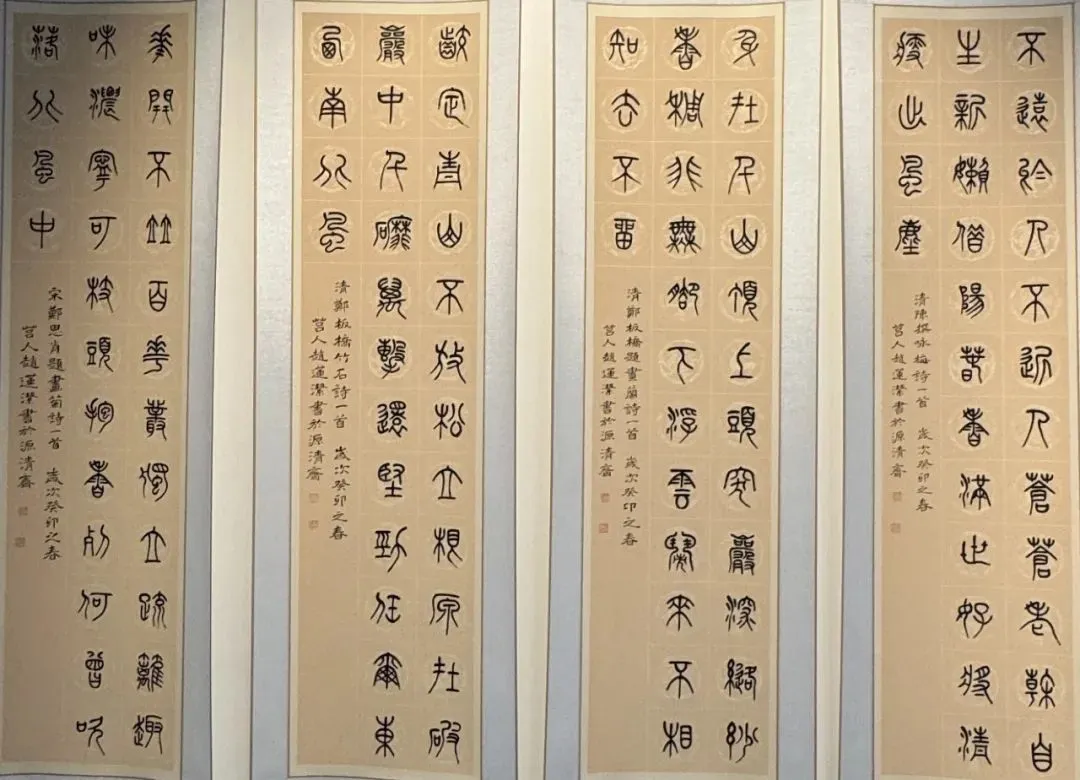 不遠於人不近人蒼蒼老幹自
生新嬾借陽春香滿世好將清
瘦出風塵
清陳撰咏梅詩一首 歲次癸卯之春
莒人趙運潔書於源清齋
身在千山頂上頭突巖深縫妙
香稠非無腳下浮雲鬧來不相
知去不留
清鄭板橋題畫蘭詩一首 歲次癸卯之春
莒人趙運潔書於源清齋
齩定青山不放松立根原在破
巖中千磨萬擊還堅勁任爾東
西南北風
清鄭板橋竹石詩一首 歲次癸卯之春
莒人趙運潔書於源清齋
花開不並百花叢獨立疏籬趣
味濃寧可枝頭抱香死何曾吹
落北風中
宋鄭思肖題畫菊詩一首 歲次癸卯之春
莒人趙運潔書於源清齋